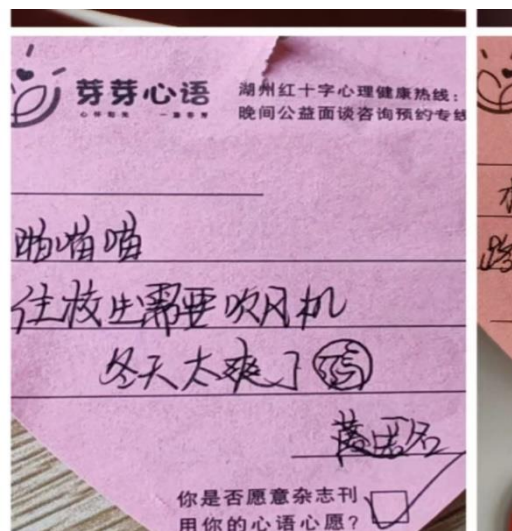 芽芽心语
湖州红十字心理健康热线：
晚间公益面谈咨询预约专线
喵喵
住校生需要吹风机
冬天太爽了
匿名
你是否愿意杂志刊
用你的心语心愿？